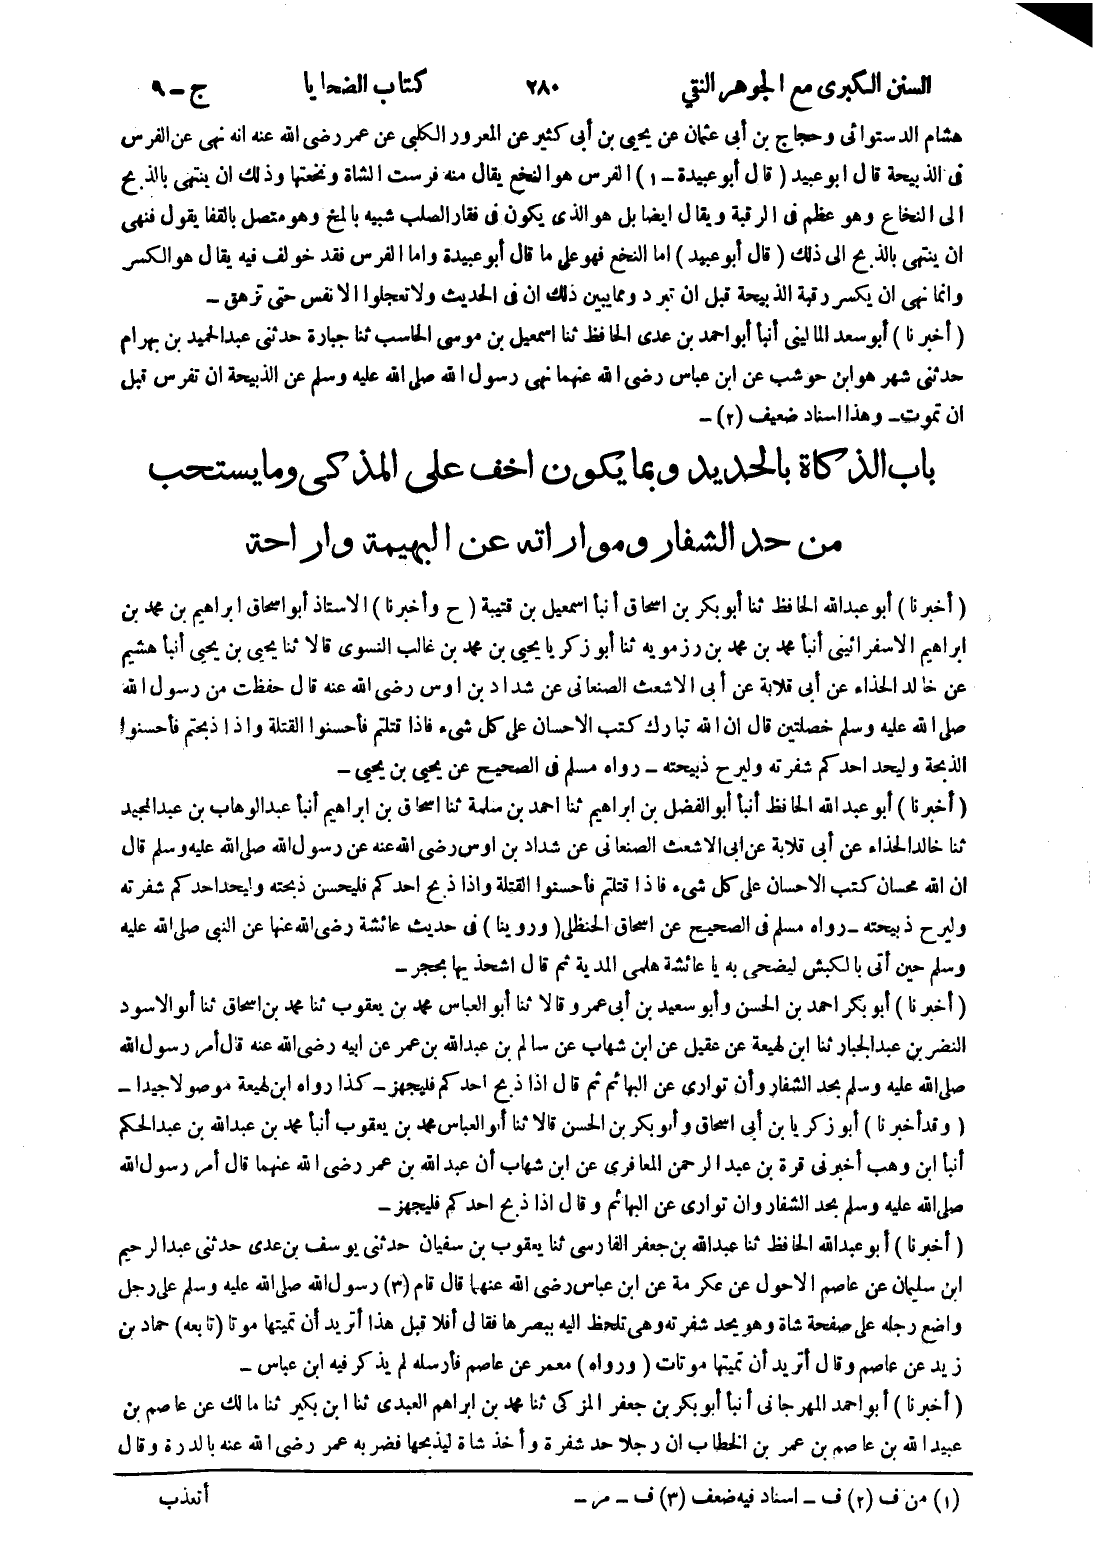 السنن الكبرى مع الجوهر النقي ٢٨٠ كتاب الضحايا ج - ٩
هشام الدستوائى وحجاج بن أبى عثمان عن يحيى بن أبى كثير عن المعرور الكلبى عن عمر رضى الله عنه انه نهى عن الفرس
فى الذبيحة قال ابو عبيد ( قال أبو عبيدة - ١ ) الفرس هو النخع يقال منه فرست الشاة ونخعتها وذلك ان ينتهى بالذبح
الى النخاع وهو عظم فى الرقبة ويقال ايضا بل هو الذى يكون فى فقار الصلب شبيه بالمخ وهو متصل بالقفا يقول فنهى
ان ينتهى بالذبح الى ذلك ( قال أبو عبيد ) اما النخع فهو على ما قال أبو عبيدة واما الفرس فقد خولف فيه يقال هو الكسر
وانما نهى ان يكسر رقبة الذبيحة قبل ان تبرد ومما يبين ذلك ان فى الحديث ولا تعجلوا الانفس حتى تزهق -
( أخبرنا ) أبو سعد المالينى أنبأ أبو احمد بن عدى الحافظ ثنا اسمعيل بن موسى الحاسب ثنا جبارة حدثنى عبد الحميد بن بهرام
حدثنى شهر هو ابن حوشب عن ابن عباس رضى الله عنهما نهى رسول الله صلى الله عليه وسلم عن الذبيحة ان تفرس قبل
ان تموت - وهذا اسناد ضعيف (٢) -
باب الذكاة بالحديد وبما يكون اخف على المذكى وما يستحب
من حد الشفار ومواراته عن البهيمة واراحة
( أخبرنا ) أبو عبد الله الحافظ ثنا أبو بكر بن اسحاق أنبأ اسمعيل بن قتيبة ( ح وأخبرنا ) الاستاذ أبو اسحاق ابراهيم بن محمد بن
ابراهيم الاسفرائينى أنبأ محمد بن محمد بن رزمويه ثنا أبو زكريا يحيى بن محمد بن غالب النسوى قالا ثنا يحيى بن يحيى أنبأ هشيم
عن خالد الحذاء عن أبى قلابة عن أبى الاشعث الصنعانى عن شداد بن اوس رضى الله عنه قال حفظت من رسول الله
صلى الله عليه وسلم خصلتين قال ان الله تبارك كتب الاحسان على كل شىء فاذا قتلتم فأحسنوا القتلة واذا ذبحتم فأحسنوا
الذبحة وليحد احدكم شفرته وليرح ذبيحته - رواه مسلم فى الصحيح عن يحيى بن يحيى -
( أخبرنا ) أبو عبد الله الحافظ أنبأ أبو الفضل بن ابراهيم ثنا احمد بن سلمة ثنا اسحاق بن ابراهيم أنبأ عبد الوهاب بن عبد المجيد
ثنا خالد الحذاء عن أبى قلابة عن ابى الاشعث الصنعانى عن شداد بن اوس رضى الله عنه عن رسول الله صلى الله عليه وسلم قال
ان الله محسان كتب الاحسان على كل شىء فاذا قتلتم فأحسنوا القتلة واذا ذبح احدكم فليحسن ذبحته وليحد احدكم شفرته
وليرح ذبيحته - رواه مسلم فى الصحيح عن اسحاق الحنظلى ( وروينا ) فى حديث عائشة رضى الله عنها عن النبى صلى الله عليه
وسلم حين أتى بالكبش ليضحى به يا عائشة هلمى المدية ثم قال اشحذيها بحجر -
( أخبرنا ) أبو بكر احمد بن الحسن وأبو سعيد بن أبى عمرو قالا ثنا أبو العباس محمد بن يعقوب ثنا محمد بن اسحاق ثنا أبو الاسود
النضر بن عبد الجبار ثنا ابن لهيعة عن عقيل عن ابن شهاب عن سالم بن عبد الله بن عمر عن ابيه رضى الله عنه قال أمر رسول الله
صلى الله عليه وسلم بحد الشفار وأن توارى عن البهائم ثم قال اذا ذبح احدكم فليجهز - كذا رواه ابن لهيعة موصولا جيدا -
( وقد أخبرنا ) أبو زكريا بن أبى اسحاق وأبو بكر بن الحسن قالا ثنا أبو العباس محمد بن يعقوب أنبأ محمد بن عبد الله بن عبد الحكم
أنبأ ابن وهب أخبرنى قرة بن عبد الرحمن المعافرى عن ابن شهاب أن عبد الله بن عمر رضى الله عنهما قال أمر رسول الله
صلى الله عليه وسلم بحد الشفار وان توارى عن البهائم وقال اذا ذبح احدكم فليجهز -
( أخبرنا ) أبو عبد الله الحافظ ثنا عبد الله بن جعفر الفارسى ثنا يعقوب بن سفيان حدثنى يوسف بن عدى حدثنى عبد الرحيم
ابن سليمان عن عاصم الاحول عن عكرمة عن ابن عباس رضى الله عنهما قال قام (٣) رسول الله صلى الله عليه وسلم على رجل
واضع رجله على صفحة شاة وهو يحد شفرته وهى تلحظ اليه ببصرها فقال أفلا قبل هذا أتريد أن تميتها موتا (تابعه) حماد بن
زيد عن عاصم وقال أتريد أن تميتها موتات ( ورواه ) معمر عن عاصم فأرسله لم يذكر فيه ابن عباس -
( أخبرنا ) أبو احمد المهرجانى أنبأ أبو بكر بن جعفر المزكى ثنا محمد بن ابراهم العبدى ثنا ابن بكير ثنا مالك عن عاصم بن
عبيد الله بن عاصم بن عمر بن الخطاب ان رجلا حد شفرة وأخذ شاة ليذبحها فضربه عمر رضى الله عنه بالدرة وقال
(١) من ف (٢) ف - اسناد فيه ضعف (٣) ف - مر - أتعذب